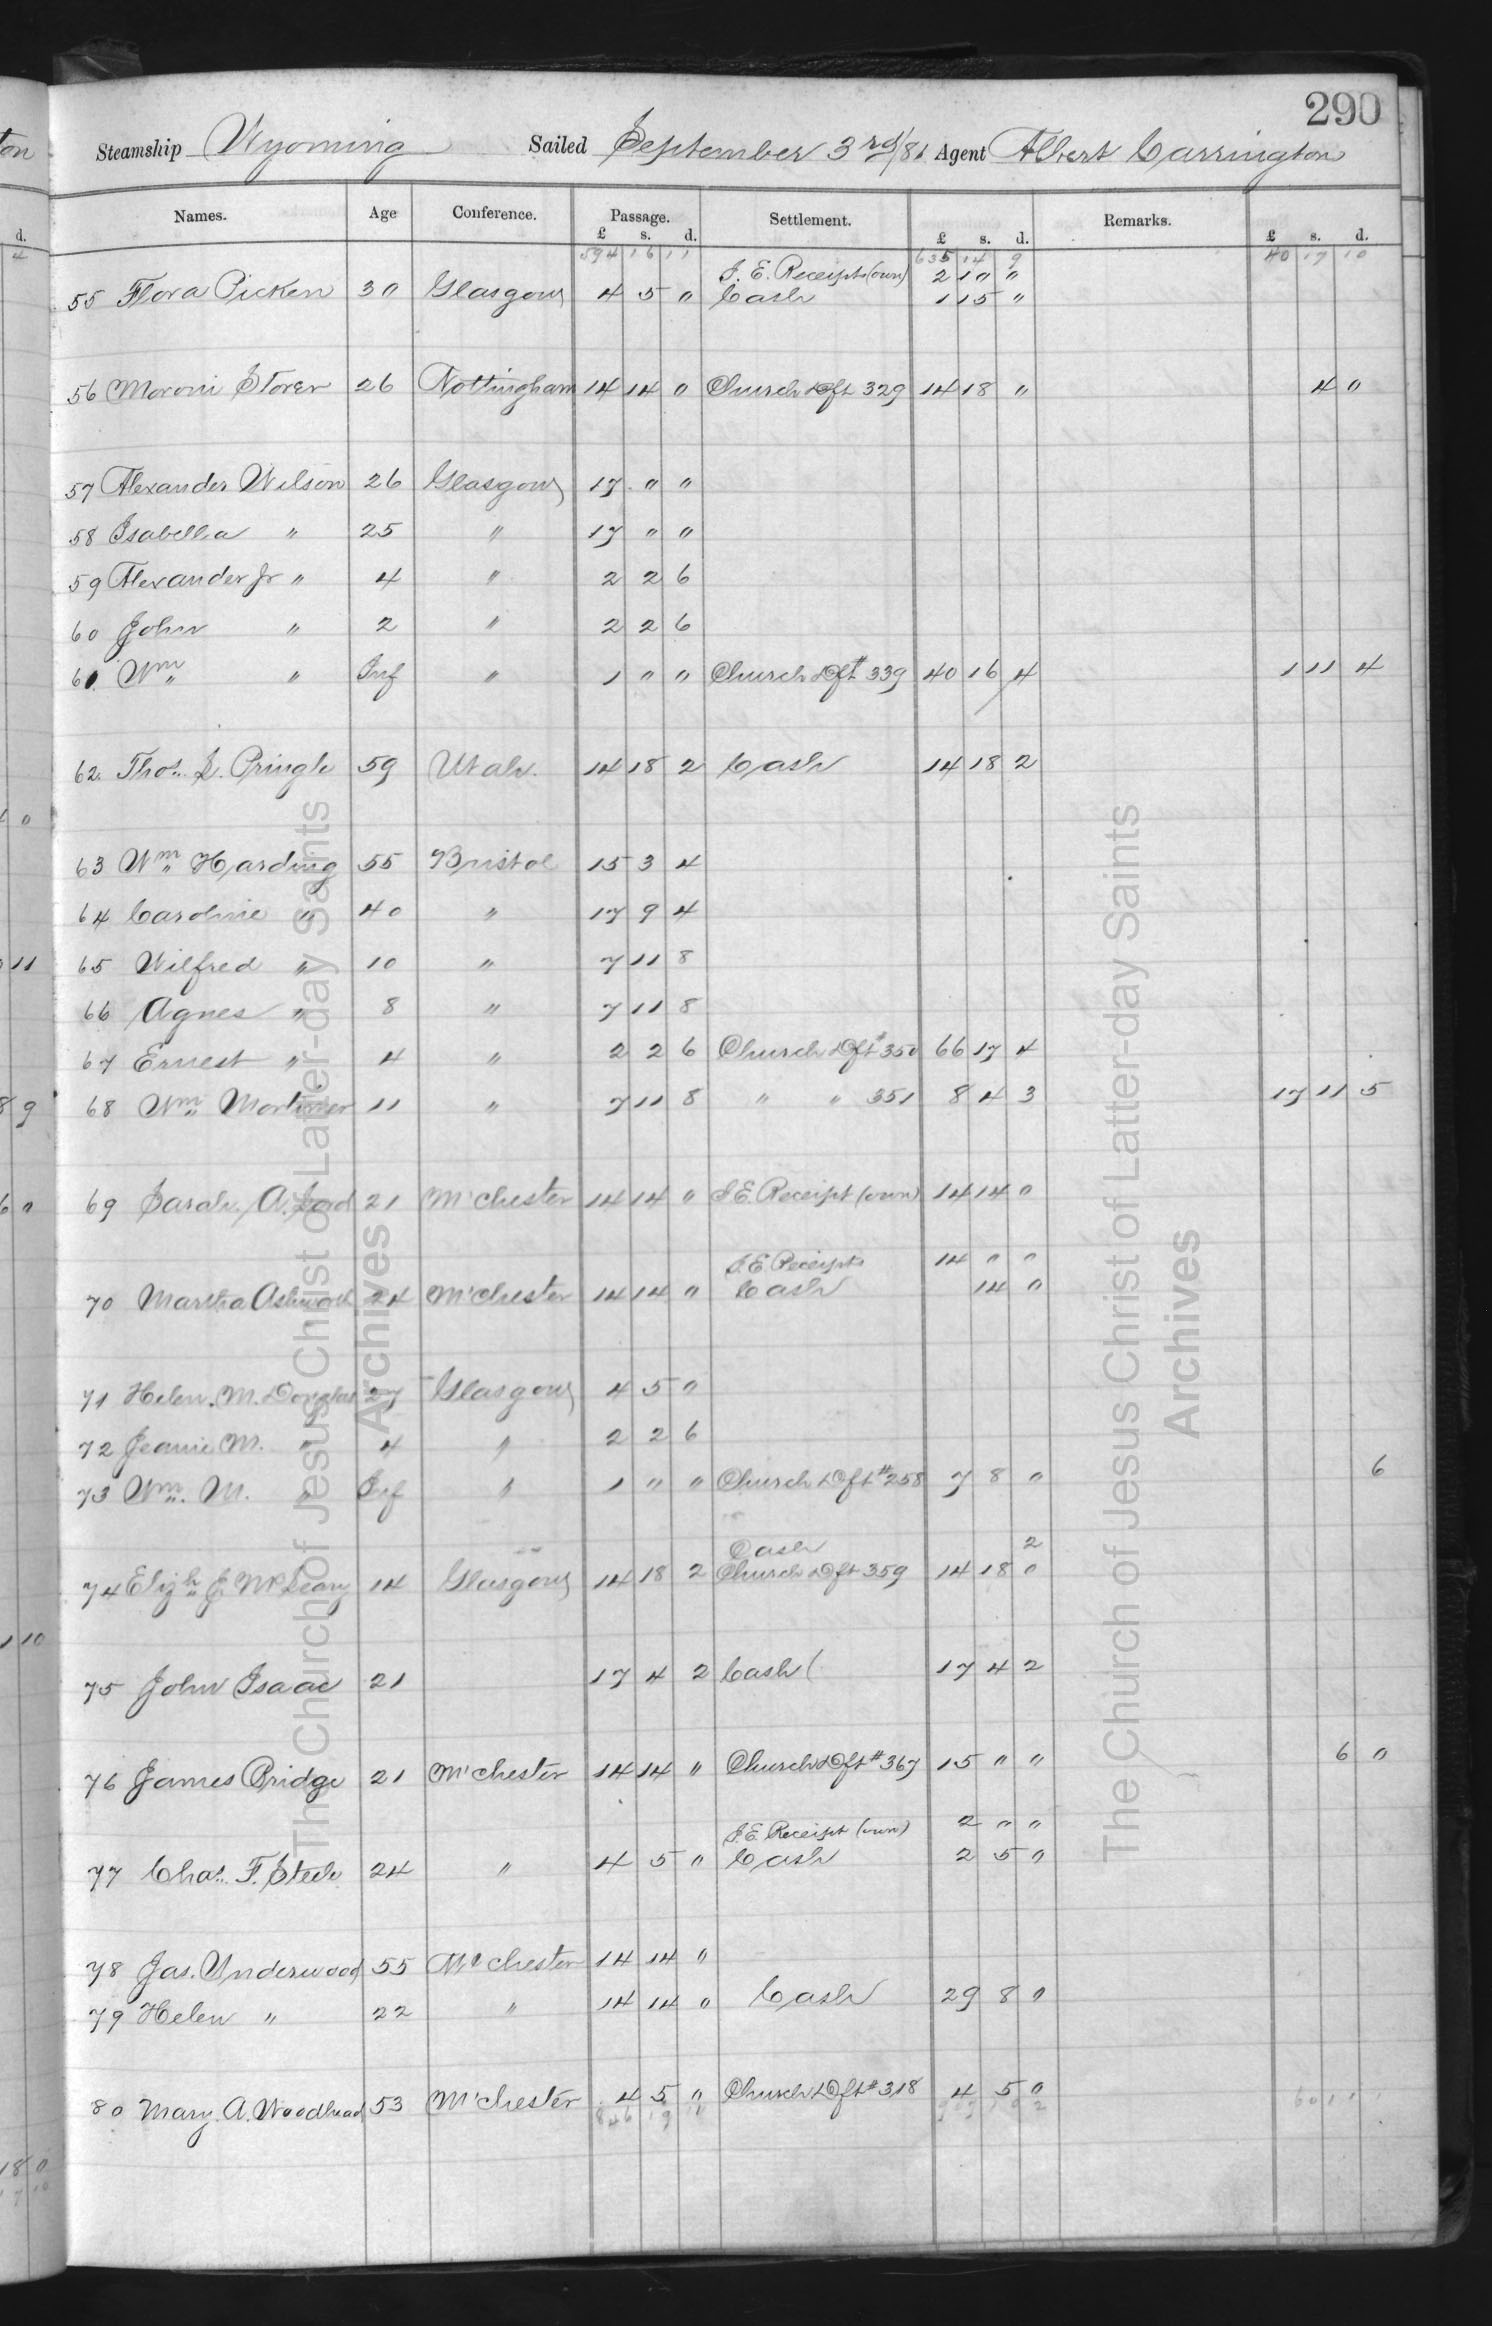 290
Steamship Wyoming Sailed September 3rd/81 Agent Albert Carrington
Names. Age Conference. Passage. Settlement. Remarks.
£ s. d. £ s. d. £ s. d.
594 16 11 635 14 9 40 17 10
I. E. Receipts (own) 2 10 "
55 Flora Picken 30 Glasgow 4 5 0 Cash 1 15 "
56 Moroni Storer 26 Nottingham 14 14 0 Church Dft 329 14 18 " 4 0
57 Alexander Wilson 26 Glasgow 17 " "
58 Isabella " 25 " 17 " "
59 Alexander Jr " 4 " 2 2 6
60 John " 2 " 2 2 6
61 Wm " Inf " 1 " " Church Dft # 339 40 16 4 1 11 4
62. Thos. S. Pringle 59 Utah. 14 18 2 Cash 14 18 2
63 Wm Harding 55 Bristol 15 3 4
64 Caroline " 40 " 17 9 4
65 Wilfred " 10 " 7 11 8
66 Agnes " 8 " 7 11 8
67 Ernest " 4 " 2 2 6 Church Dft # 350 66 17 4
68 Wm Mortimer 11 " 7 11 8 " " 351 8 4 3 17 11 5
69 Sarah A. Lord 21 M'chester 14 14 " I E. Receipt (own) 14 14 0
I. E. Receipts 14 " 0
70 Martha Ashworth 24 M'chester 14 14 " Cash 14 0
71 Helen. M. Douglas 27 Glasgow 4 5 0
72 Jeanie M. " 4 " 2 2 6
73 Wm. M. " Inf " 1 " " Church Dft # 258 7 8 0 6
Cash 2
74 Elizh J. McLeary 14 Glasgow 14 18 2 Church Dft 359 14 18 0
75 John Isaac 21 17 4 2 Cash ( 17 4 2
76 James Bridge 21 M'chester 14 14 " Church Dft # 367 15 " " 6 0
I. E. Receipt (own) 2 " "
77 Chas. F. Steele 24 " 4 5 " Cash 2 5 0
78 Jas. Underwood 55 M'chester 14 14 "
79 Helen " 22 " 14 14 0 Cash 29 8 0
80 Mary. A. Woodhead 53 M'chester 4 5 " Church Dft # 318 4 5 0
846 19 11
The Church of Jesus Christ of Latter-day Saints
Archives
The Church of Jesus Christ of Latter-day Saints
Archives